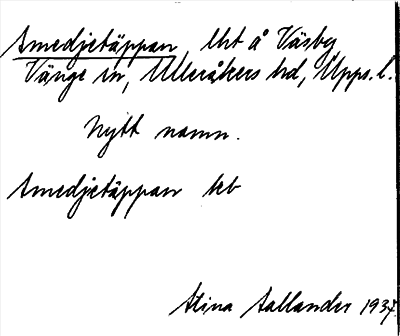 Smedjetäppan, lht å Väsby,
Vänge sn, Ulleråkers hd, Upps. l.
Nytt namn.
Smedjetäppan hb
Stina Sallander 1937.